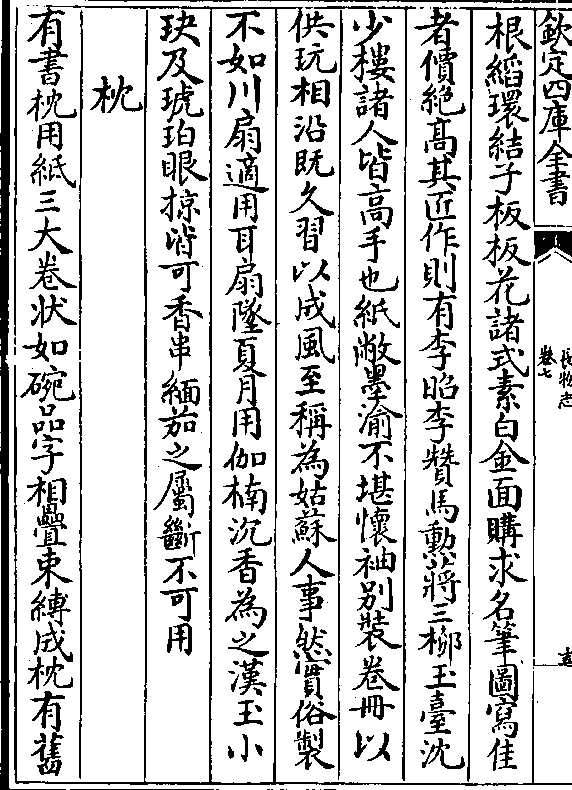 欽定四庫全書
長物志
卷七
根縚環結子板板花諸式素白金面購求名筆圖寫佳
者價絶髙其匠作則有李昭李贊馬勲蔣三柳玉臺沈
少樓諸人皆高手也紙敝墨渝不堪懷袖别裝卷冊以
供玩相沿既久習以成風至稱為姑蘇人事然實俗製
不如川扇適用耳扇墜夏月用伽楠沉香為之漢玉小
玦及琥珀眼掠皆可香串緬茄之屬斷不可用
枕
有書枕用紙三大卷状如碗品字相疊束縛成枕有舊